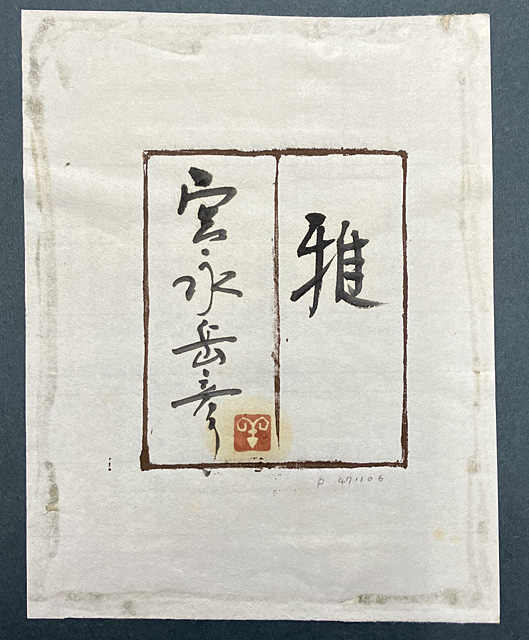 雅
宮永岳彦
p 471106